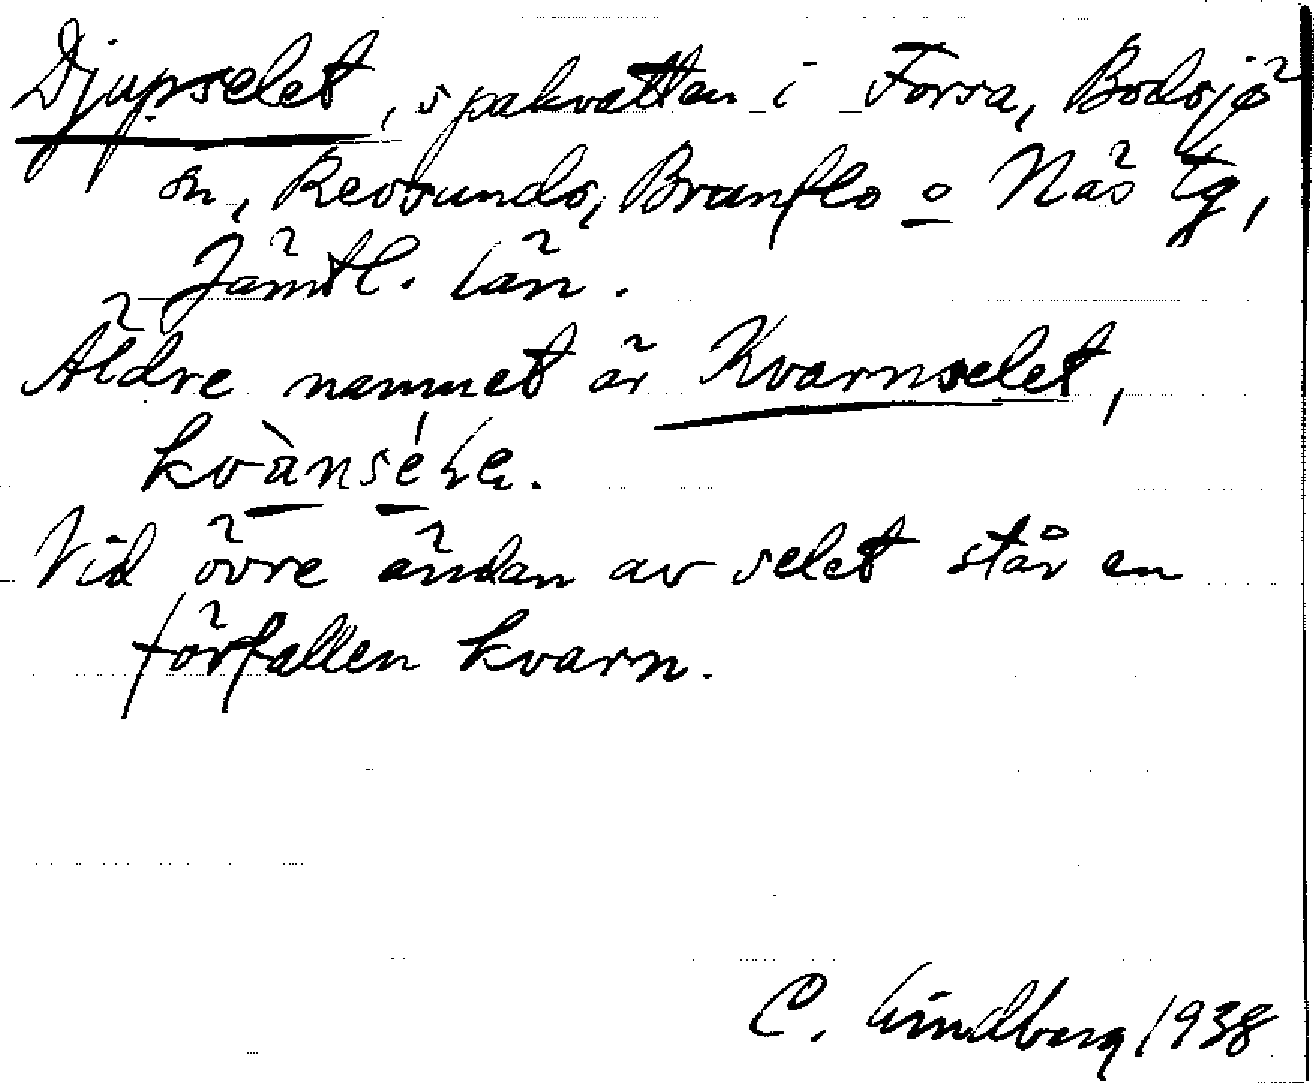 Djupselet, spakvatten i Forsa, Bodsjö
sn, Revsunds, Brunflo o Näs tg,
Jämtl. län.
Äldre namnet är Kvarnselet,
kvànséle.
Vid övre ändan av selet står en
förfallen kvarn.
C. Lindberg 1938